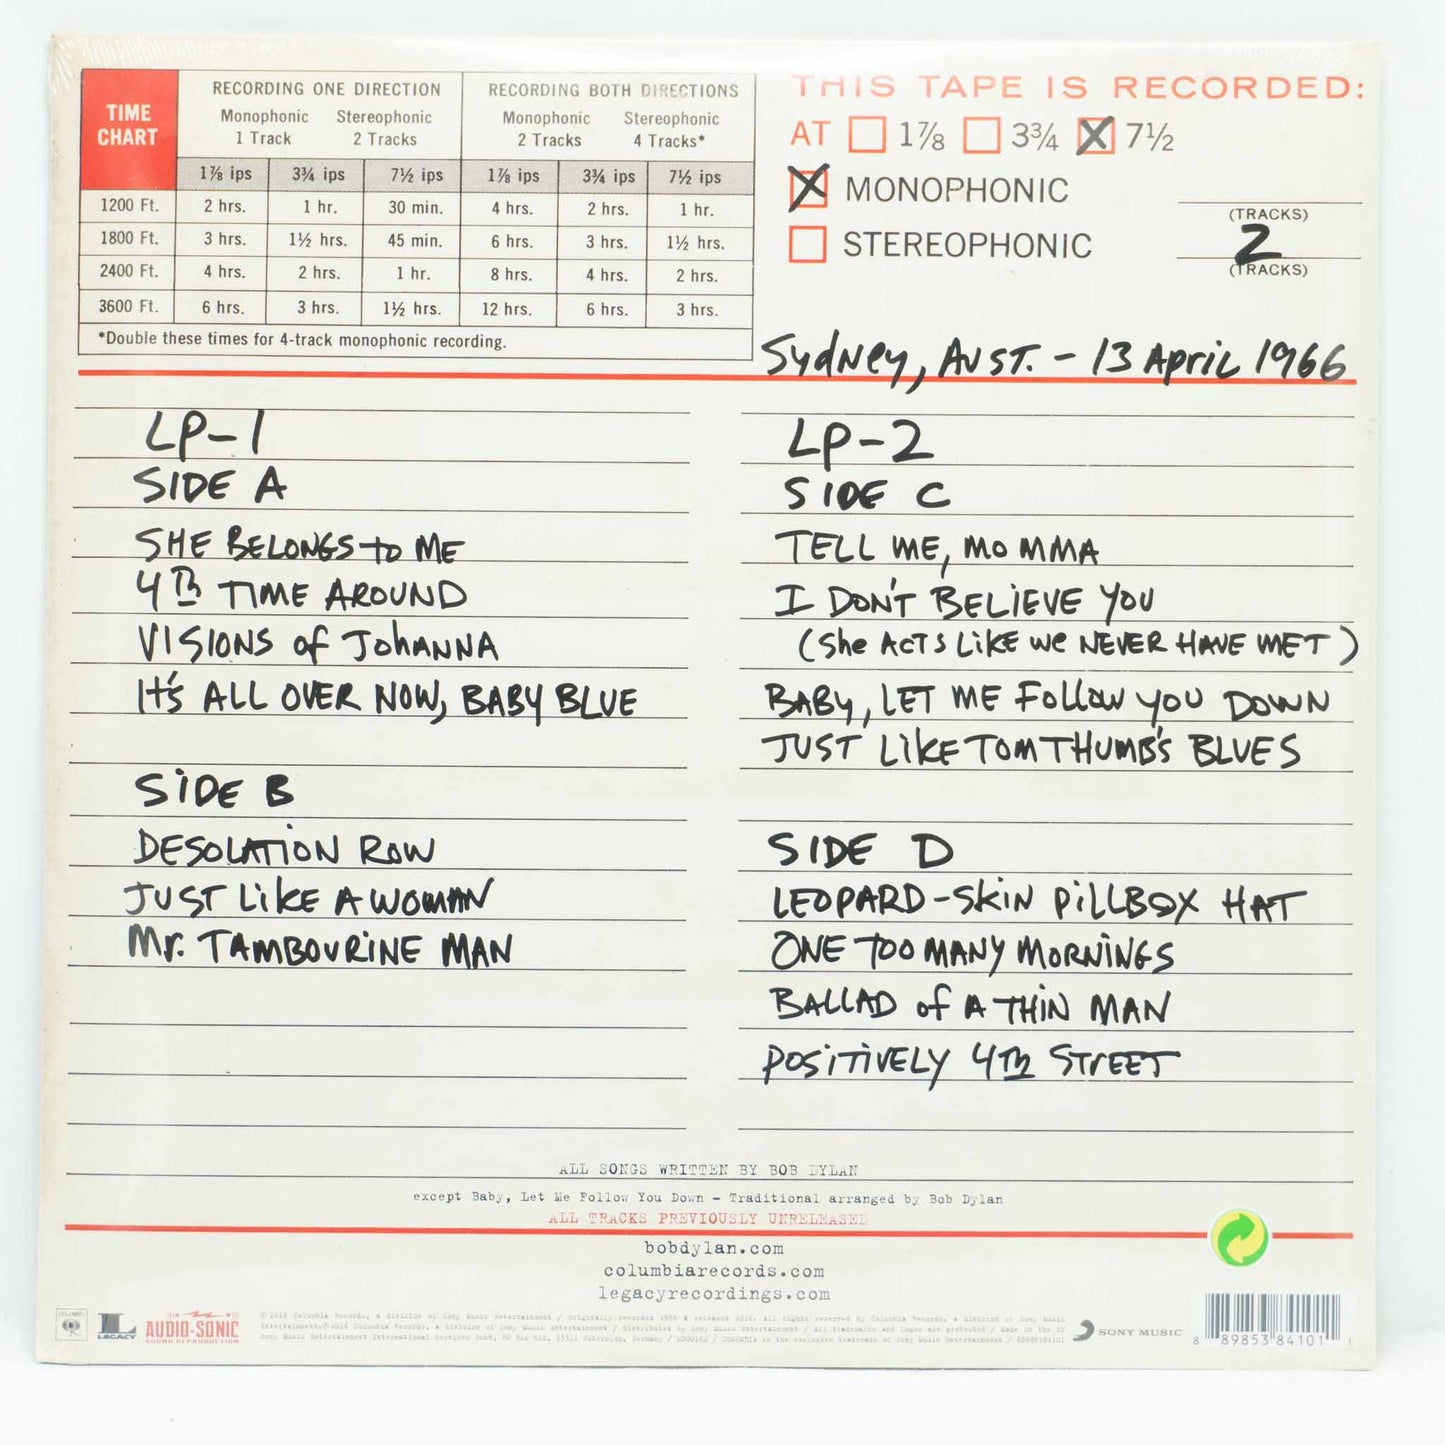 TIME CHART
RECORDING ONE DIRECTION
RECORDING BOTH DIRECTIONS
Monophonic 1 Track
Stereophonic 2 Tracks
Monophonic 2 Tracks
Stereophonic 4 Tracks*
1⅞ ips 3¾ ips 7½ ips 1⅞ ips 3¾ ips 7½ ips
1200 Ft. 2 hrs. 1 hr. 30 min. 4 hrs. 2 hrs. 1 hr.
1800 Ft. 3 hrs. 1½ hrs. 45 min. 6 hrs. 3 hrs. 1½ hrs.
2400 Ft. 4 hrs. 2 hrs. 1 hr. 8 hrs. 4 hrs. 2 hrs.
3600 Ft. 6 hrs. 3 hrs. 1½ hrs. 12 hrs. 6 hrs. 3 hrs.
*Double these times for 4-track monophonic recording.
THIS TAPE IS RECORDED:
AT 1⅞ 3¾ X 7½
X MONOPHONIC
(TRACKS)
STEREOPHONIC 2
(TRACKS)
Sydney, AUST. - 13 April 1966
LP-1
SIDE A
SHE BELONGS to ME
4Th TIME AROUND
VISIONS of JOhANNA
It's ALL OVER NOW, BABY BLUE
SiDE B
DESOLATiON ROW
JUST LiKE A WOMAN
Mr. TAMBOURINE MAN
LP-2
SIDE C
TELL ME, MOMMA
I DON'T BELiEVE YOU
(She ACTS LiKE We NEVER HAVE MET)
BABY, LET ME Follow YOU DOWN
JUST LiKE TOM THUMB's BLUES
SIDE D
LEOPARD-SKiN PiLLBOX HAT
ONE TOO MANY MORNiNGS
BALLAD of A THiN MAN
POSiTiVELY 4Th STREET
ALL SONGS WRITTEN BY BOB DYLAN
except Baby, Let Me Follow You Down – Traditional arranged by Bob Dylan
ALL TRACKS PREVIOUSLY UNRELEASED
bobdylan.com
columbiarecords.com
legacyrecordings.com
COLUMBIA
LEGACY
AUDIO-SONIC
SOUND REPRODUCTION
℗ 2016 Columbia Records, a division of Sony Music Entertainment / Originally recorded 1966 & released 2016. All rights reserved by Columbia Records, a division of Sony Music
SONY MUSIC
8 89853 84101 1